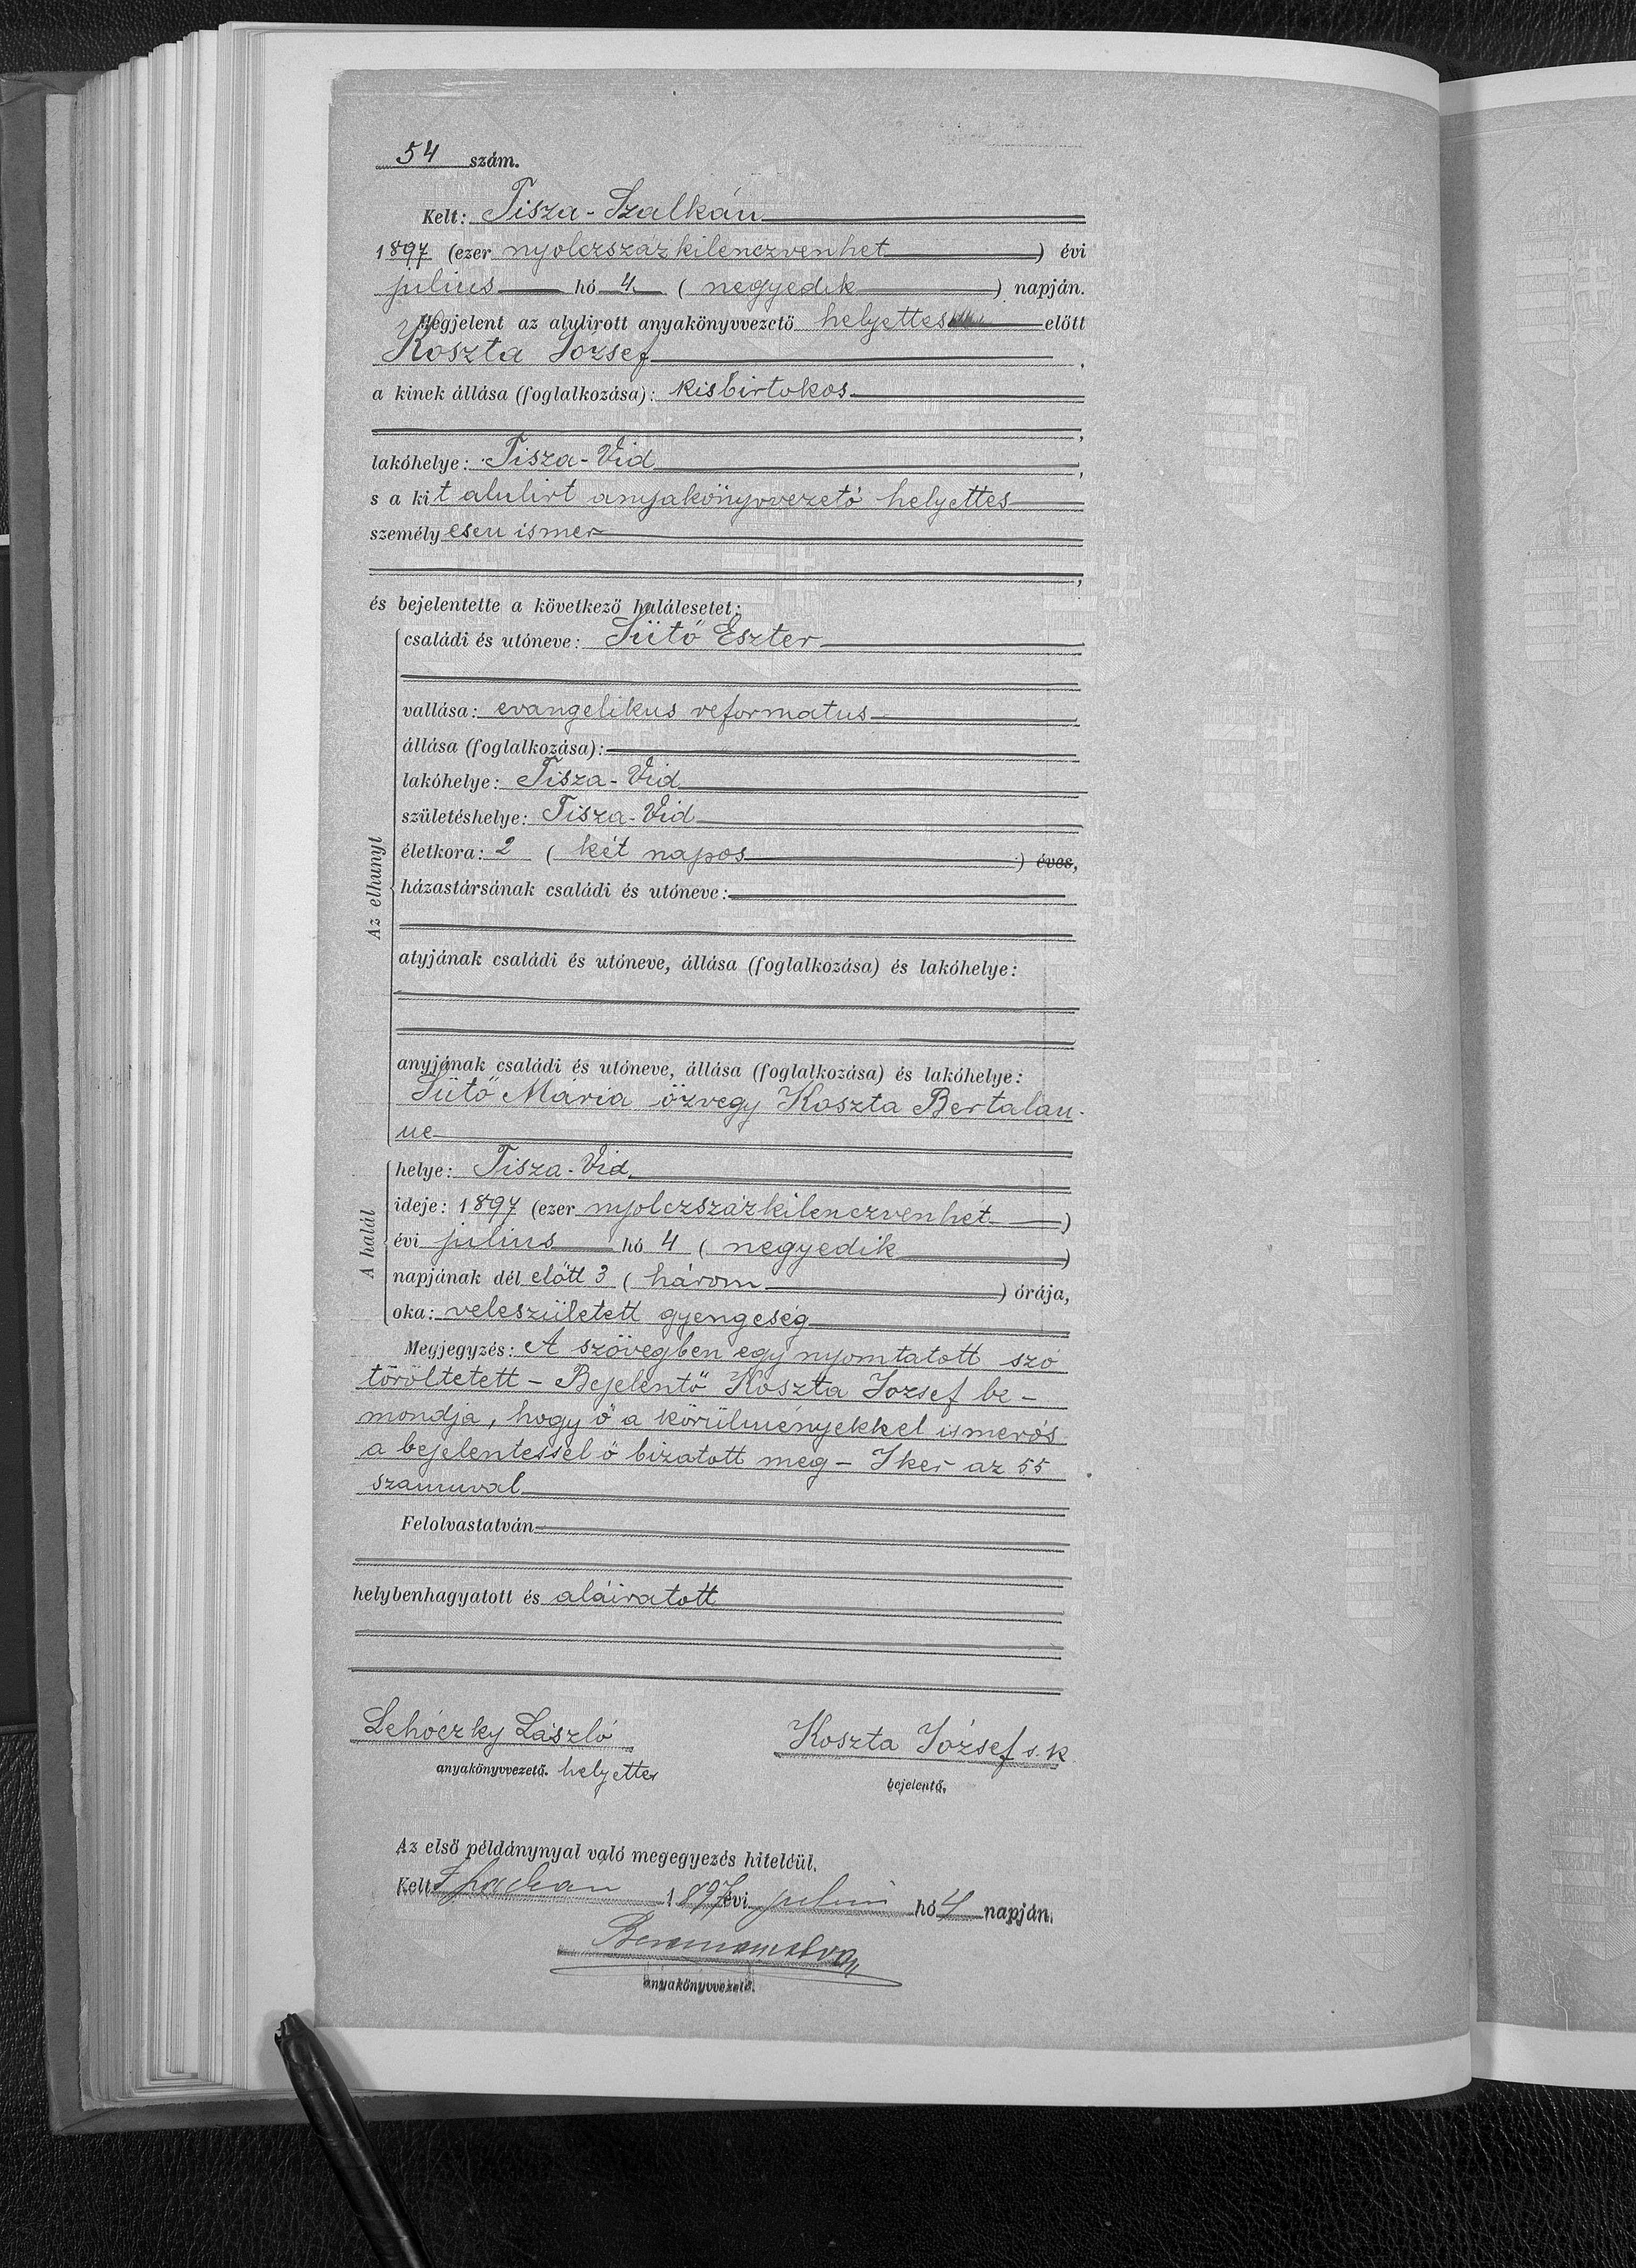 54 szám.
Kelt: Tisza-Szalkán
1897 (ezer nyolczszázkilenczvenhet) évi
julius hó 4 (negyedik) napján.
Megjelent az alulirott anyakönyvvezető helyettes előtt
Koszta Jozsef,
a kinek állása (foglalkozása): kisbirtokos
,
lakóhelye: Tisza-Vid,
s a kit alulirt anyakönyvvezető helyettes
személyesen ismer
,
és bejelentette a következő halálesetet:
Az elhunyt
családi és utóneve: Sütő Eszter
vallása: evangelikus reformatus
állása (foglalkozása):
lakóhelye: Tisza-Vid
születéshelye: Tisza-Vid
életkora: 2 (két napos) éves,
házastársának családi és utóneve:
atyjának családi és utóneve, állása (foglalkozása) és lakóhelye:
anyjának családi és utóneve, állása (foglalkozása) és lakóhelye:
Sütő Mária özvegy Koszta Bertalan-
ne
A halál
helye: Tisza-Vid
ideje: 1897 (ezer nyolczszázkilenczvenhét)
évi julius hó 4 (negyedik)
napjának dél előtt 3 (három) órája,
oka: veleszületett gyengeség
Megjegyzés: A szövegben egy nyomtatott szó
töröltetett - Bejelentő Koszta Jozsef be-
mondja, hogy ő a körülményekkel ismerős
a bejelentessel ő bizatott meg - Iker az 55
szammal
Felolvastatván
helybenhagyatott és aláiratott
Lehóczky László
anyakönyvvezető. helyettes
Koszta József s. k
bejelentő.
Az első példánynyal való megegyezés hiteléül.
Kelt 1897 évi julius hó 4 napján.
anyakönyvvezető.